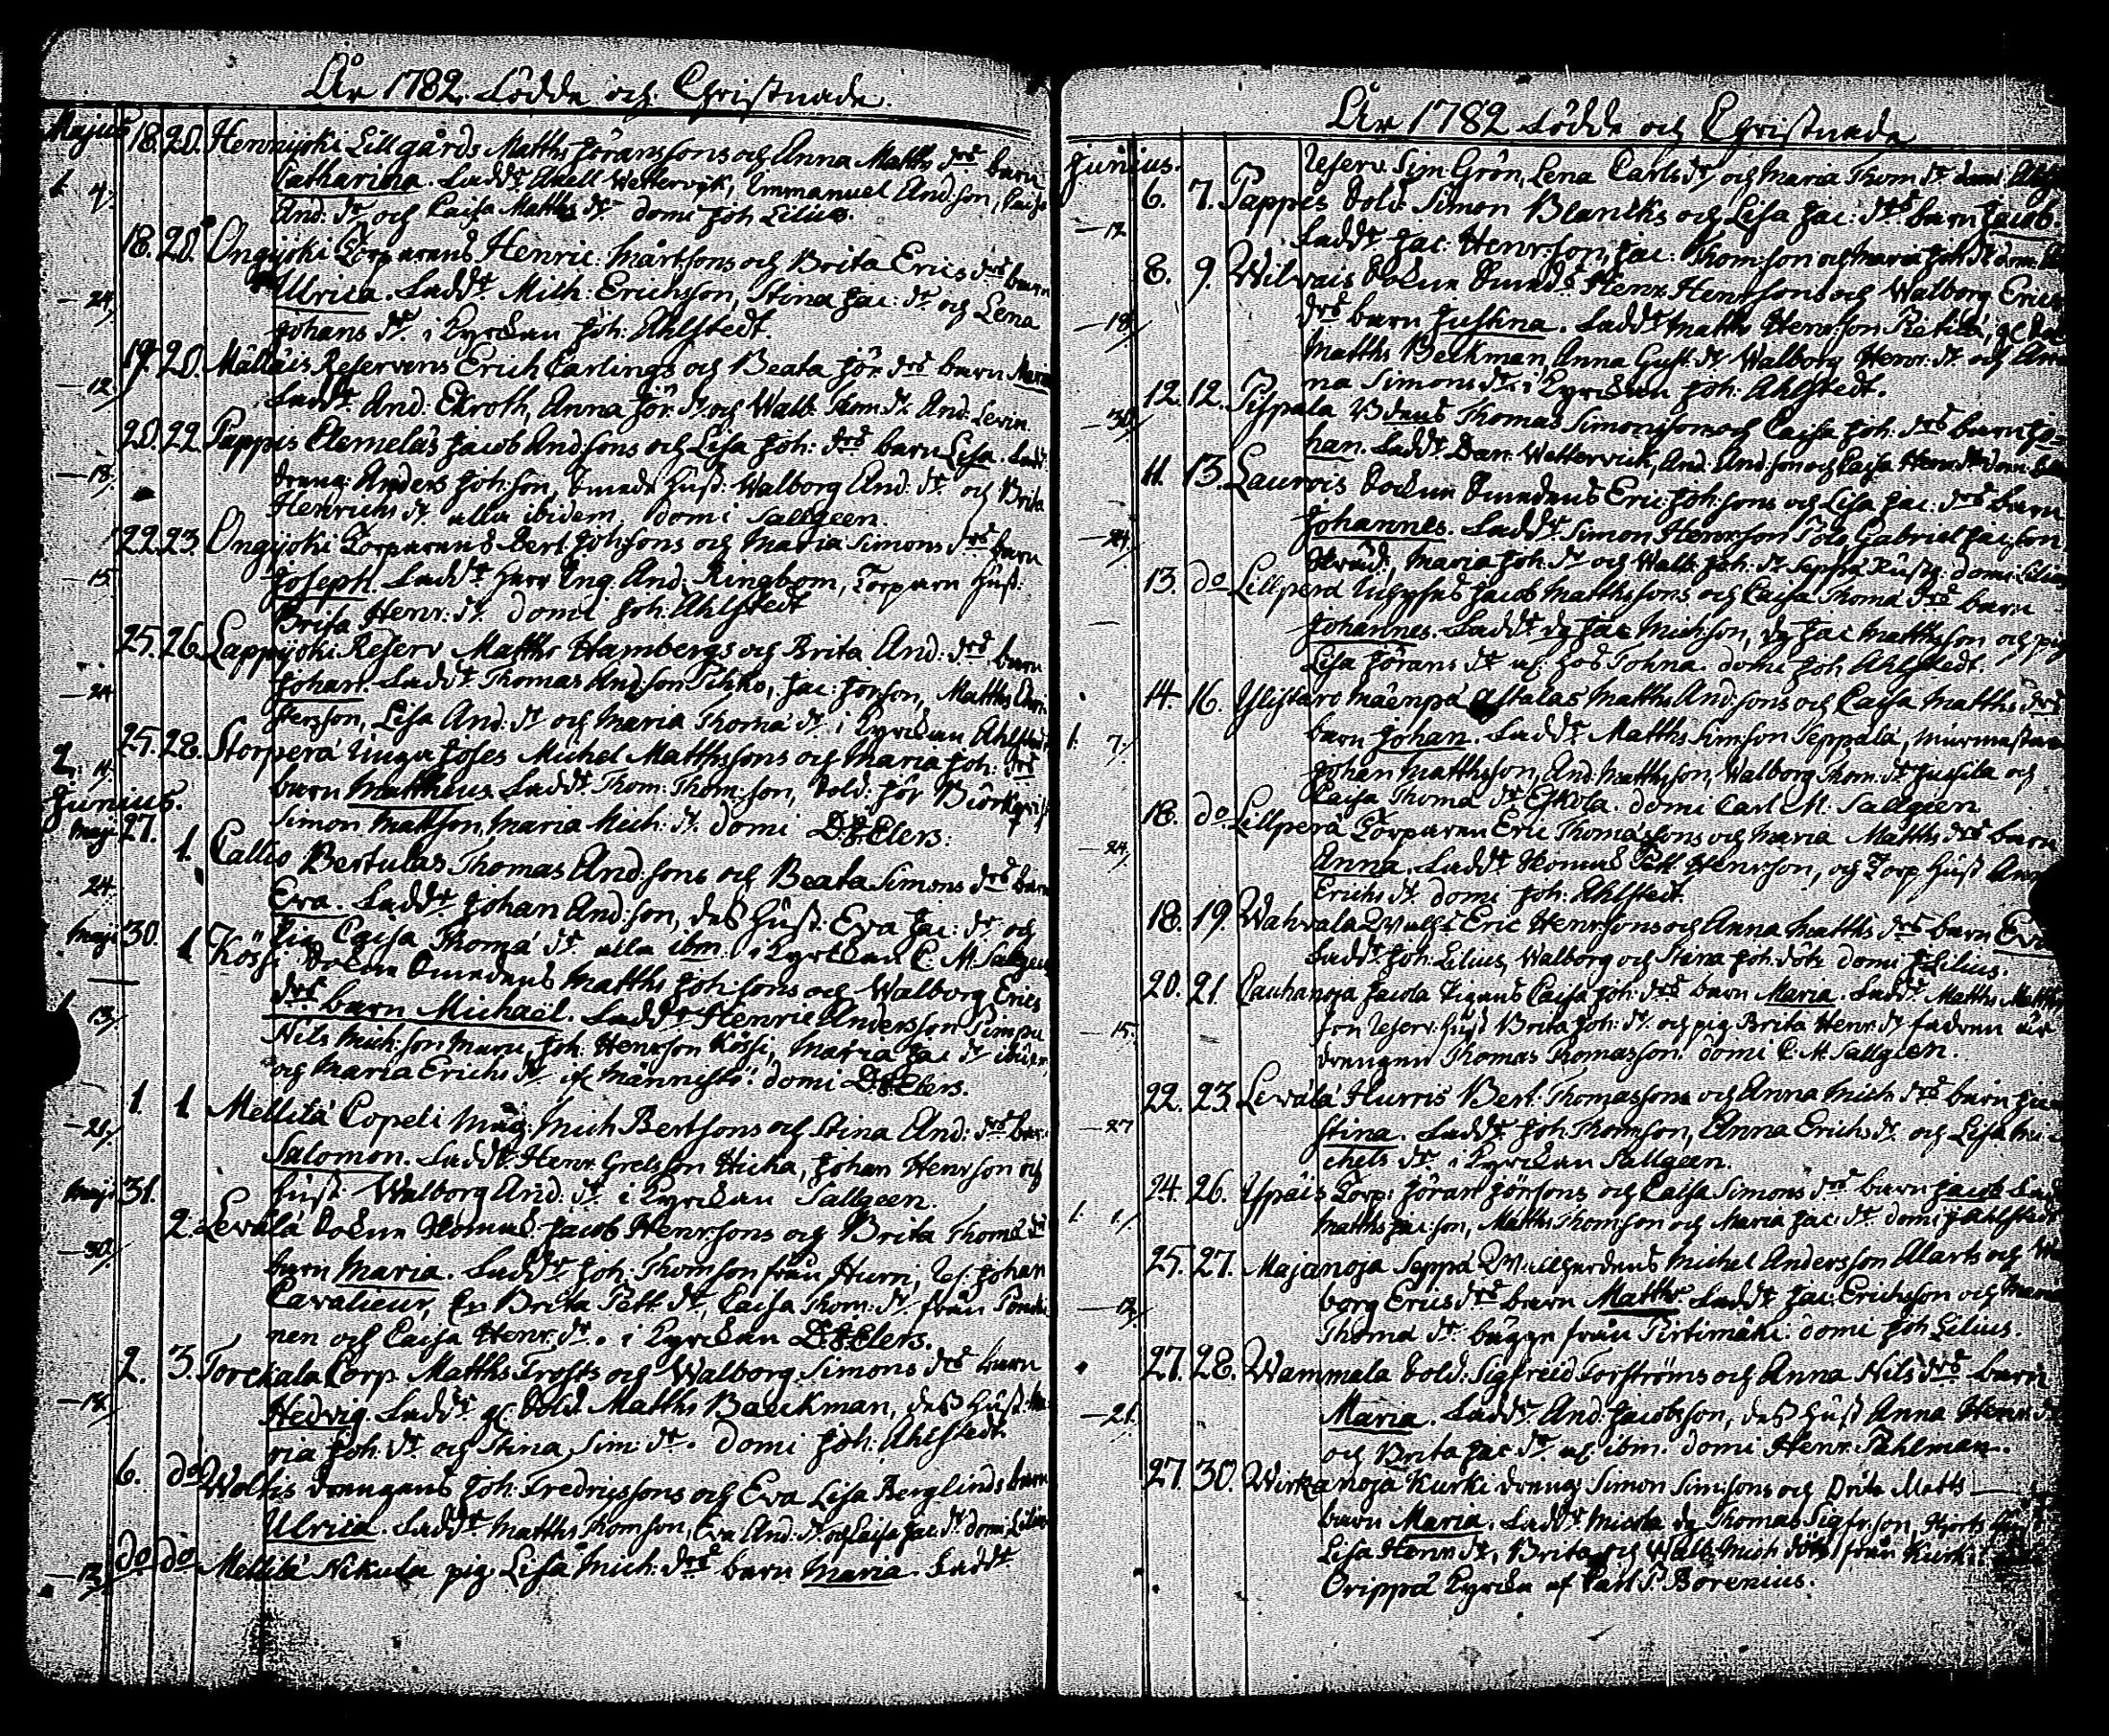 År 1782. Födde och Christnade.
Majus 18. 20. Hennijoki Lillgårds Matths Jöranssons och Anna Matths drs barn
1. 4. Catharina. Fadd: Axell Wettervik, Emmanuel And:son, Caisa
And: dr och Caisa Matths dr domi Joh: Lilius.
18. 20. Ongijoki Torparens Henric Mårtsons och Brita Erics drs barn
— 24. Ulrica. Fadd: Mich: Erichsson, Stina Jac: dr och Lena
Johans dr i Kyrckan Joh: Ahlstedt.
19. 20. Mälläis Reservens Erich Carlings och Beata Jör: drs barn Maria
— 12. Fadd: And: Ekroth, Anna Jör: dr och Walb: Thom: dr. And: Levin.
20. 22. Pappis Clemelas Jacob And:sons och Lisa Joh: drs barn Lisa. Fadd:
— 18. dreng: Anders Joh:son, Hust: Walborg And: dr och Brita
Henrichs dr alla ibidem domi Sallgeen.
22. 23. Ongijoki Torparens Bert Joh:sons och Maria Simons drs barn
— 15. Joseph. Fadd: Herr Ing. And: Ringbom, Torparn Hust:
Brita Henr: dr domi Joh: Ahlstedt
25. 26. Lappijoki Reserv Matths Hambergs och Brita And: drs barn
— 24. Johan. Fadd: Thomas And:son Pitko, Jac: Jörson, Matths Chri-
stersson, Lisa And: dr och Maria Thoma dr i Kyrckan Ahlstedt
25. 28. Storperä Unga Joses Michel Matthssons och Maria Joh: drs
2. 4. barn Mattheus Fadd: Thom: Thom:son, Sold: Jör Biörkqvist
Junius.
Simon Mattson, Maria Mich: dr domi D:J:Elers.
Maji 27. 1. Callio Bertulas Thomas And:sons och Beata Simons drs barn
24. Eva. Fadd: Johan And:son, des Hust: Eva Jac: dr och
Pig: Caisa Thoma dr alla ibm. i Kyrckan C. M. Sallgeen
Maji 30. 1 Kössi Matths Joh:sons och Walborg Erics
1. 13. drs barn Michaël. Fadd: Henric Andersson Simpu
Nils Mich:son Maru, Joh: Henrson Kössi, Maria Jac: dr ibidem,
och Maria Erichs dr Männistö. domi D:J:Elers.
1. 1 Mellilä Copeli Måg: Mich Bertsons och Stina And: drs barn
— 21. Salomon. Fadd: Henr. Grelsson Hicka, Johan Henrson och
Hust Walborg And: dr i Kyrckan Sallgeen.
Maji 31. 2. Levälä Jacob Henrsons och Brita Thoma drs
— 30. barn Maria. Fadd: Joh: Thomson från Hurri, Res: Johan
Cavalieur, Brita Pett: dr, Caisa Thom: dr från
nen och Caisa Henr: dr. i Kyrckan D:J:Elers.
2. 3. Torckala Torp. Matths Frosts och Walborg Simons drs barn
— 18. Hedvig. Fadd: Sold: Matths Baeckman, des Hust: Ma-
ria Joh: dr och Stina Sim: dr. domi Joh: Ahlstedt.
6. do Woltis drengens Joh: Fredricssons och Eva Lisa Berglinds barn
Ulrica. Fadd: Matths Thomson, Eva And: dr och Caisa Jac: dr domi Lilius
— 13. do do Mellilä Nikula pig. Lisa Mich: drs barn Maria. Fadd:
År 1782 Födde och Christnade
Junius. Reserv. Sim Grön, Lena Carls dr och Maria Thom: dr domi
6. 7. Pappis Sold: Simon Blancks och Lisa Jac: drs barn Jacob.
— 12 Fadd: Jac: Henr:son, Jac: Thom:son och Maria Joh: dr dom:
8. 9. Wilvais Henr Henrsons och Walborg Erics
— 18. drs barn Justina. Fadd: Matths Henr:son
Matths Beckman, Anna Gust: dr Walborg Henr: dr och An-
na Simons dr i Kyrckan Joh: Ahlstedt.
12. 12. Pispala Thomas Simonssons och Caisa Joh: drs barn Jo-
— 30. han. Fadd: Dan: Wetterwick, And: And:son och Caisa Henr: dr dom:
11. 13. Laurois Eric Joh:sons och Lisa Jac: drs barn
— 24. Johannes. Fadd: Simon Henrson Gabriel Jac:son
Maria Joh: dr och Walb: Joh: dr Seppä domi Lilius
13. do Lillperä Jacob Matthssons och Caisa Thoma drs barn
— Johannes. Fadd: dg Jac Mich:son, dg Jac Matthsson och pig
Lisa Jörans dr domi Joh Ahlstedt.
14. 16. Ylistaro Mäenpä Astalas Matths And:sons och Caisa Matths drs
1. 7. barn Johan. Fadd: Matths Sim:son Seppälä, murmästaren
Johan Matthsson, And: Matthsson, Walborg Thom: dr Jussila och
Caisa Thoma dr Eskola. domi Carl M. Sallgeen
18. do Lillperä Torparen Eric Thomassons och Maria Matths drs barn
— 24. Anna. Fadd: Pett: Henrson, och Torp Hust Anna
Erichs dr domi Joh: Ahlstedt.
18. 19. Wahvala Eric Henrsons och Anna Matths drs barn Eva
Fadd: Joh: Lilius, Walborg och Stina Joh: döttr domi J:Lilius.
20. 21. Cauhanoja Jacola Pigans Caisa Joh: drs barn Maria. Fadd: Matths Matths-
— 15. son Reserv: Hust Brita Joh: dr och pig. Brita Henr: dr fadren är
drengen Thomas Thomasson. domi C. M. Sallgeen.
22. 23. Levälä Hurris Bert: Thomassons och Anna Mich drs barn Ju-
— 27 stina. Fadd: Joh: Thomson, Anna Erichs dr och Lisa Mi-
chels dr i Kyrckan Sallgeen.
24. 26. Yspäis Torp: Jöran Jörsons och Caisa Simons drs barn Jacob Fadd
1. 1. Matths Jac:son, Matths Thom:son och Maria Jac: dr domi J:Ahlstedt
25. 27. Majanoja Seppä Michel Andersson Alarts och Wal-
— 13. borg Erics drs barn Matths Fadd: Jac: Erichsson och Maria
Thoma dr bägge från Pirtimäki domi Joh Lilius.
27. 28. Wammala Sold: Sigfreid Forströms och Anna Nils drs barn
— 21. Maria. Fadd: And: Jacobsson, des Hust Anna Henr: dr
och Brita Jac: dr ibm. domi Henr: Pahlman.
27. 30. Wirkanoja Kurki dreng: Simon Simsons och Brita Matts
barn Maria. Fadd: Micola dg Thomas Sigfr:son,
Lisa Henr: dr, Brita och Walb: Mich: döttr från Kurki
Orippä Kyrcka af Carl P. Borenius.